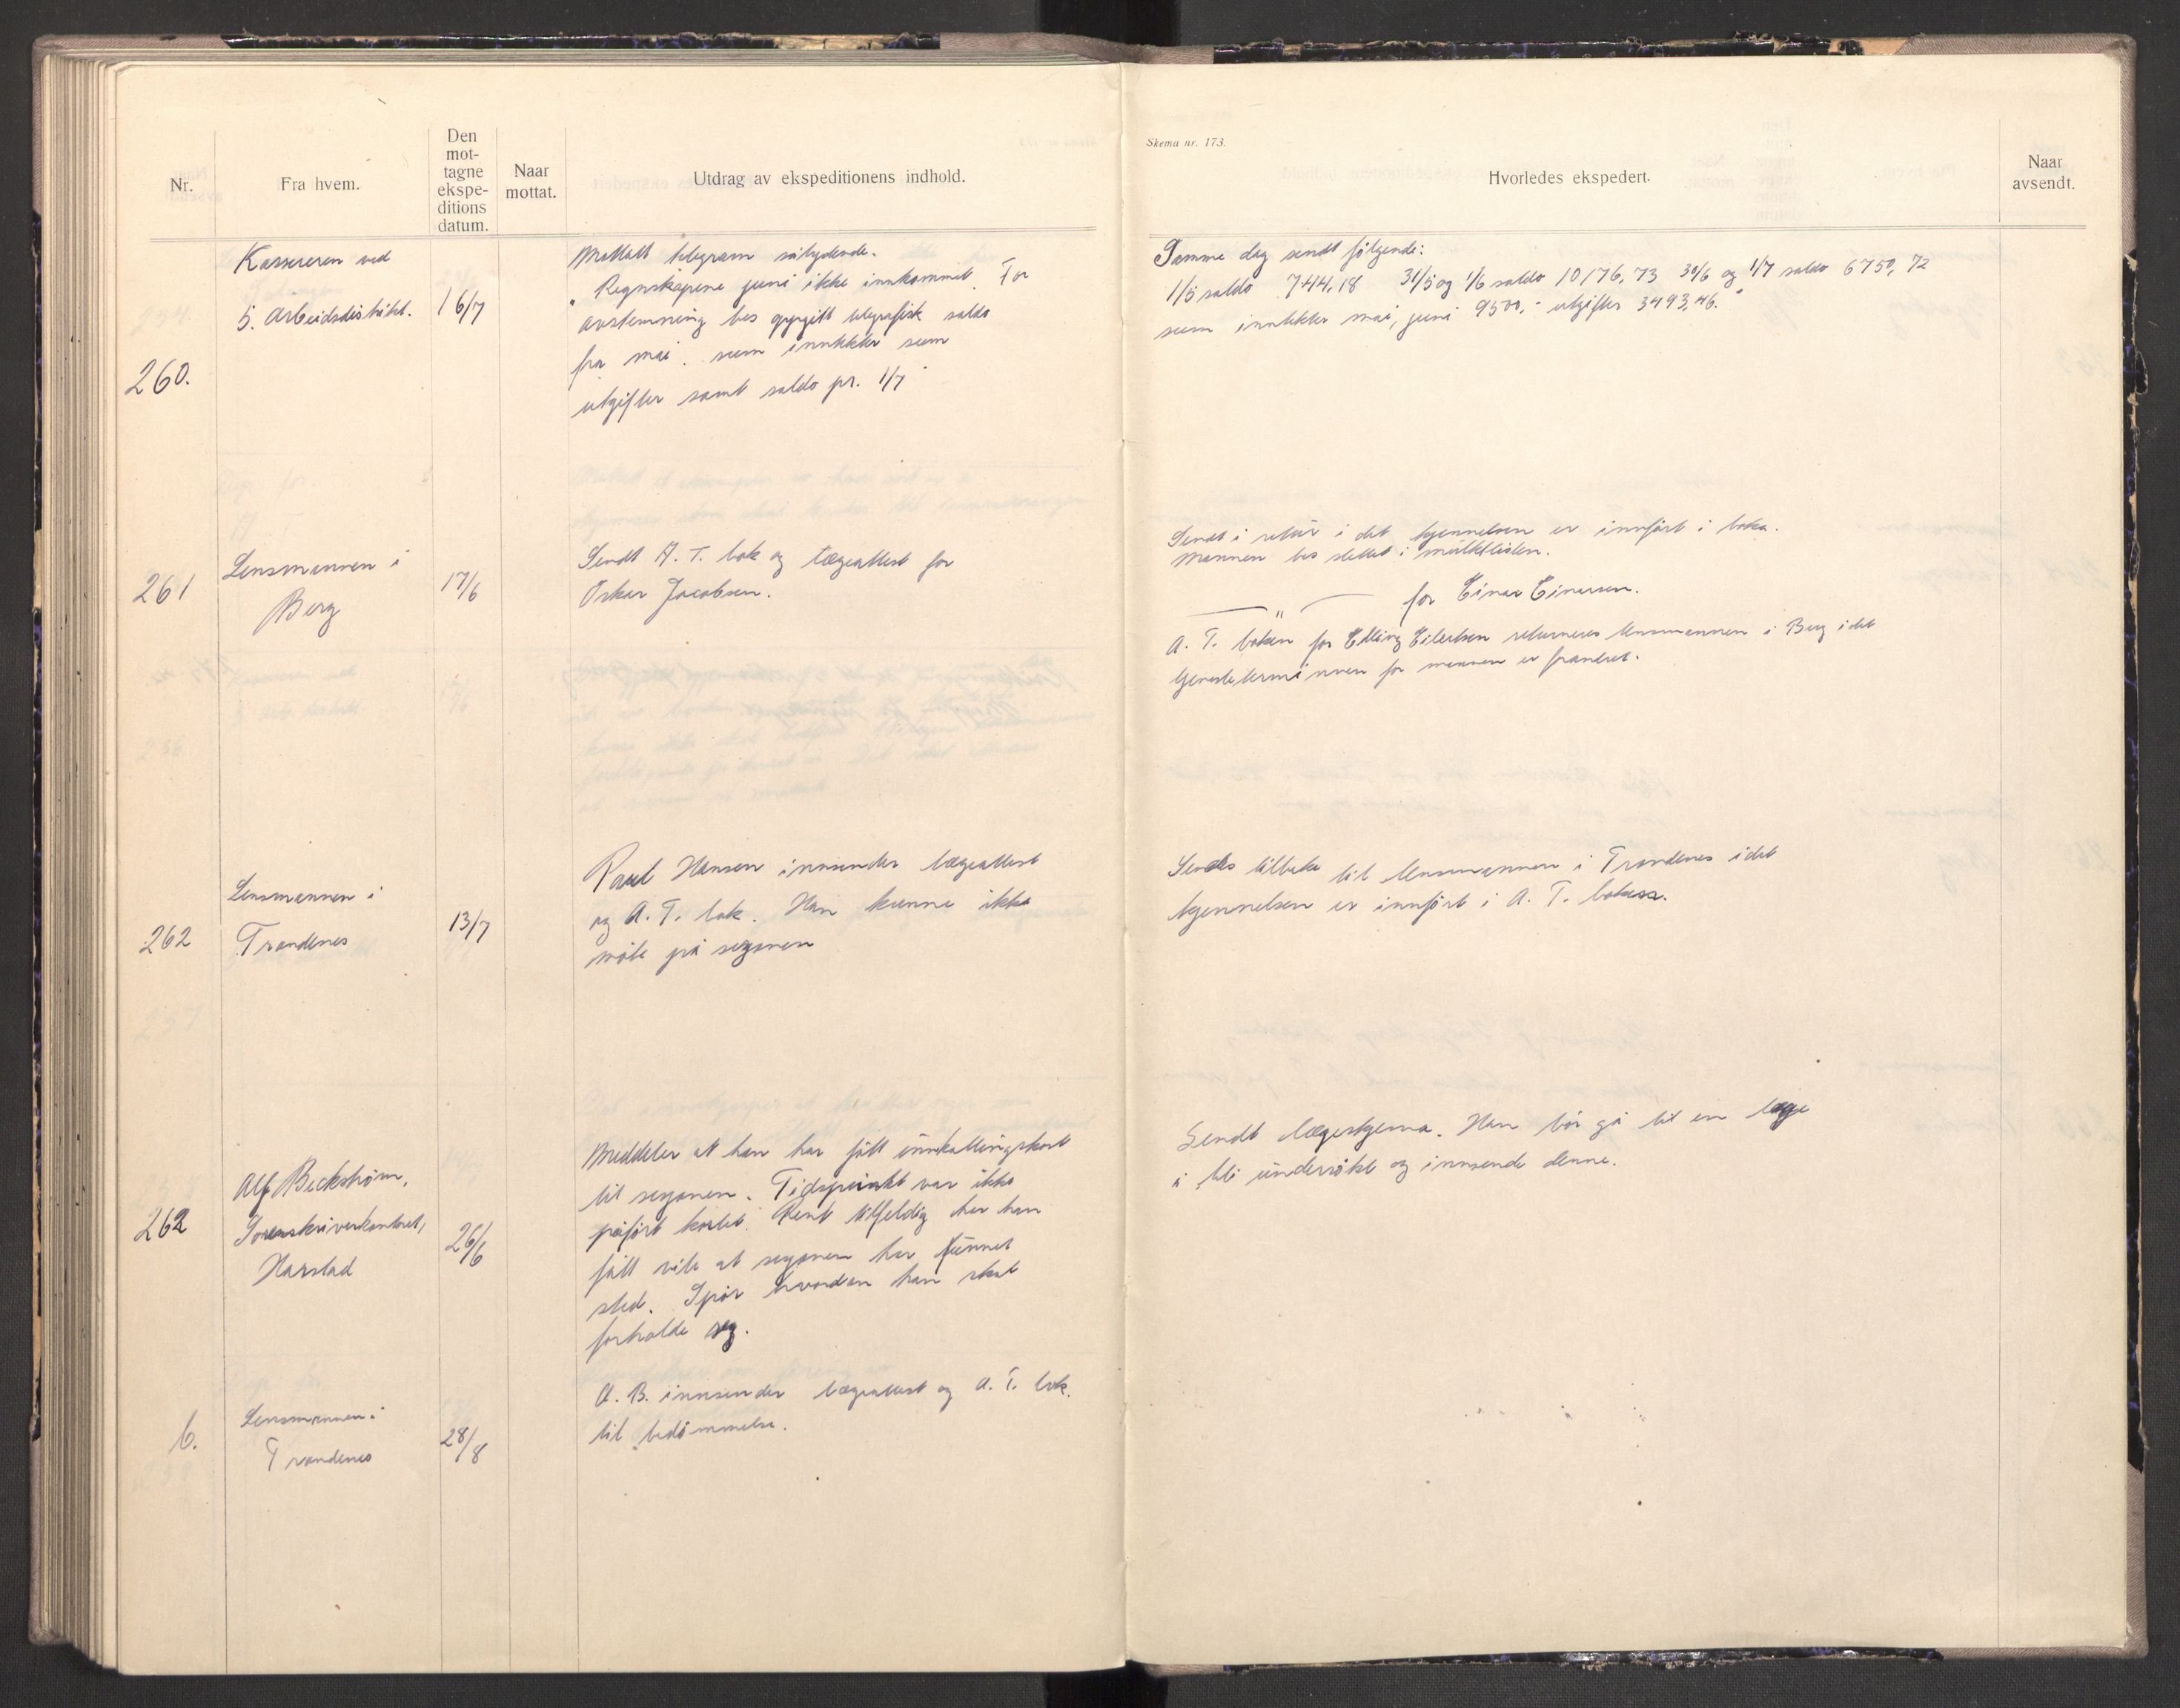 Nr.
Fra hvem.
Den
mot-
tagne
ekspe-
ditions
datum.
Naar
mottat.
Utdrag av ekspeditionens indhold.
260.
Kassereren ved
5. Arbeidsdistrikt.
16/7
Mottatt telegram sålydende.
"Regnskapene juni ikke innkommet. For
avstemning bes oppgitt telegrafisk saldo
fra mai. sum inntekter sum
utgifter samt saldo pr. 1/7"
261
Lensmannen i
Berg
17/6
Sendt A. T. bok og lægeattest for
Oskar Jacobsen.
262
Lensmannen i
Trondenes
13/7
Paul Hansen innsender lægeattest
og A. T. bok. Han kunne ikke
møte på sesjonen
262
Alf Beckstrøm,
Sorenskriverkontoret,
Harstad
26/6
Meddeler at han har fått innkallingskort
til sesjonen. Tidspunkt var ikke
påført kortet. Rent tilfeldig har han
fått vite at sesjonen har funnet
sted. Spør hvordan han skal
forholde seg.
b.
Lensmannen i
Trondenes
28/8
A. B. innsender lægeattest og A. T. bok.
til bedømmelse.
Skema nr. 173.
Hvorledes ekspedert.
Naar
avsendt.
Samme dag sendt følgende:
1/5 saldo 744,18 31/5 og 1/6 saldo 10176,73 30/6 og 1/7 saldo 6750,72
sum inntekter mai, juni 9500,- utgifter 3493,46."
Sendt i retur i det kjennelsen er innført i boka.
Mannen bes slettet i
— " — for Einar Einarsen.
A. T. boken for Elling Eilertsen returneres lensmannen i Berg idet
tjenesteterminen for mannen er forandret.
Sendes tilbake til lensmannen i Trondenes idet
kjennelsen er innført i A. T. boken.
Sendt lægeskjema. Han bør gå til en læge
å bli undersøkt og innsende denne.